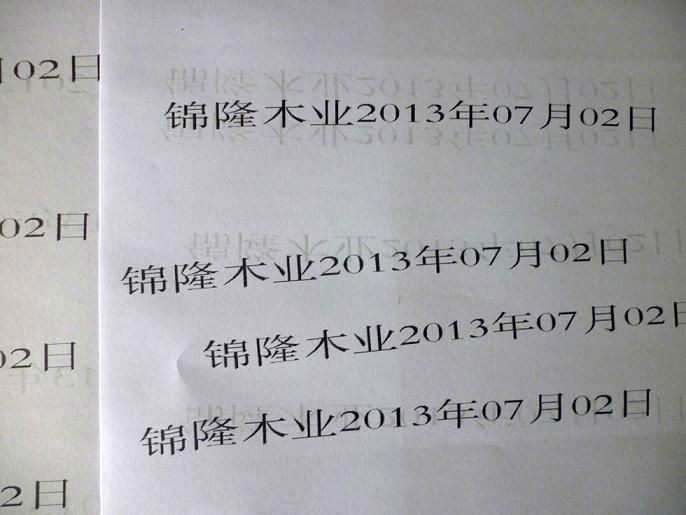 月02日
锦隆木业2013年07月02日
02日
锦隆木业2013年07月02日
锦隆木业2013年07月02日
02日
锦隆木业2013年07月02日
2日